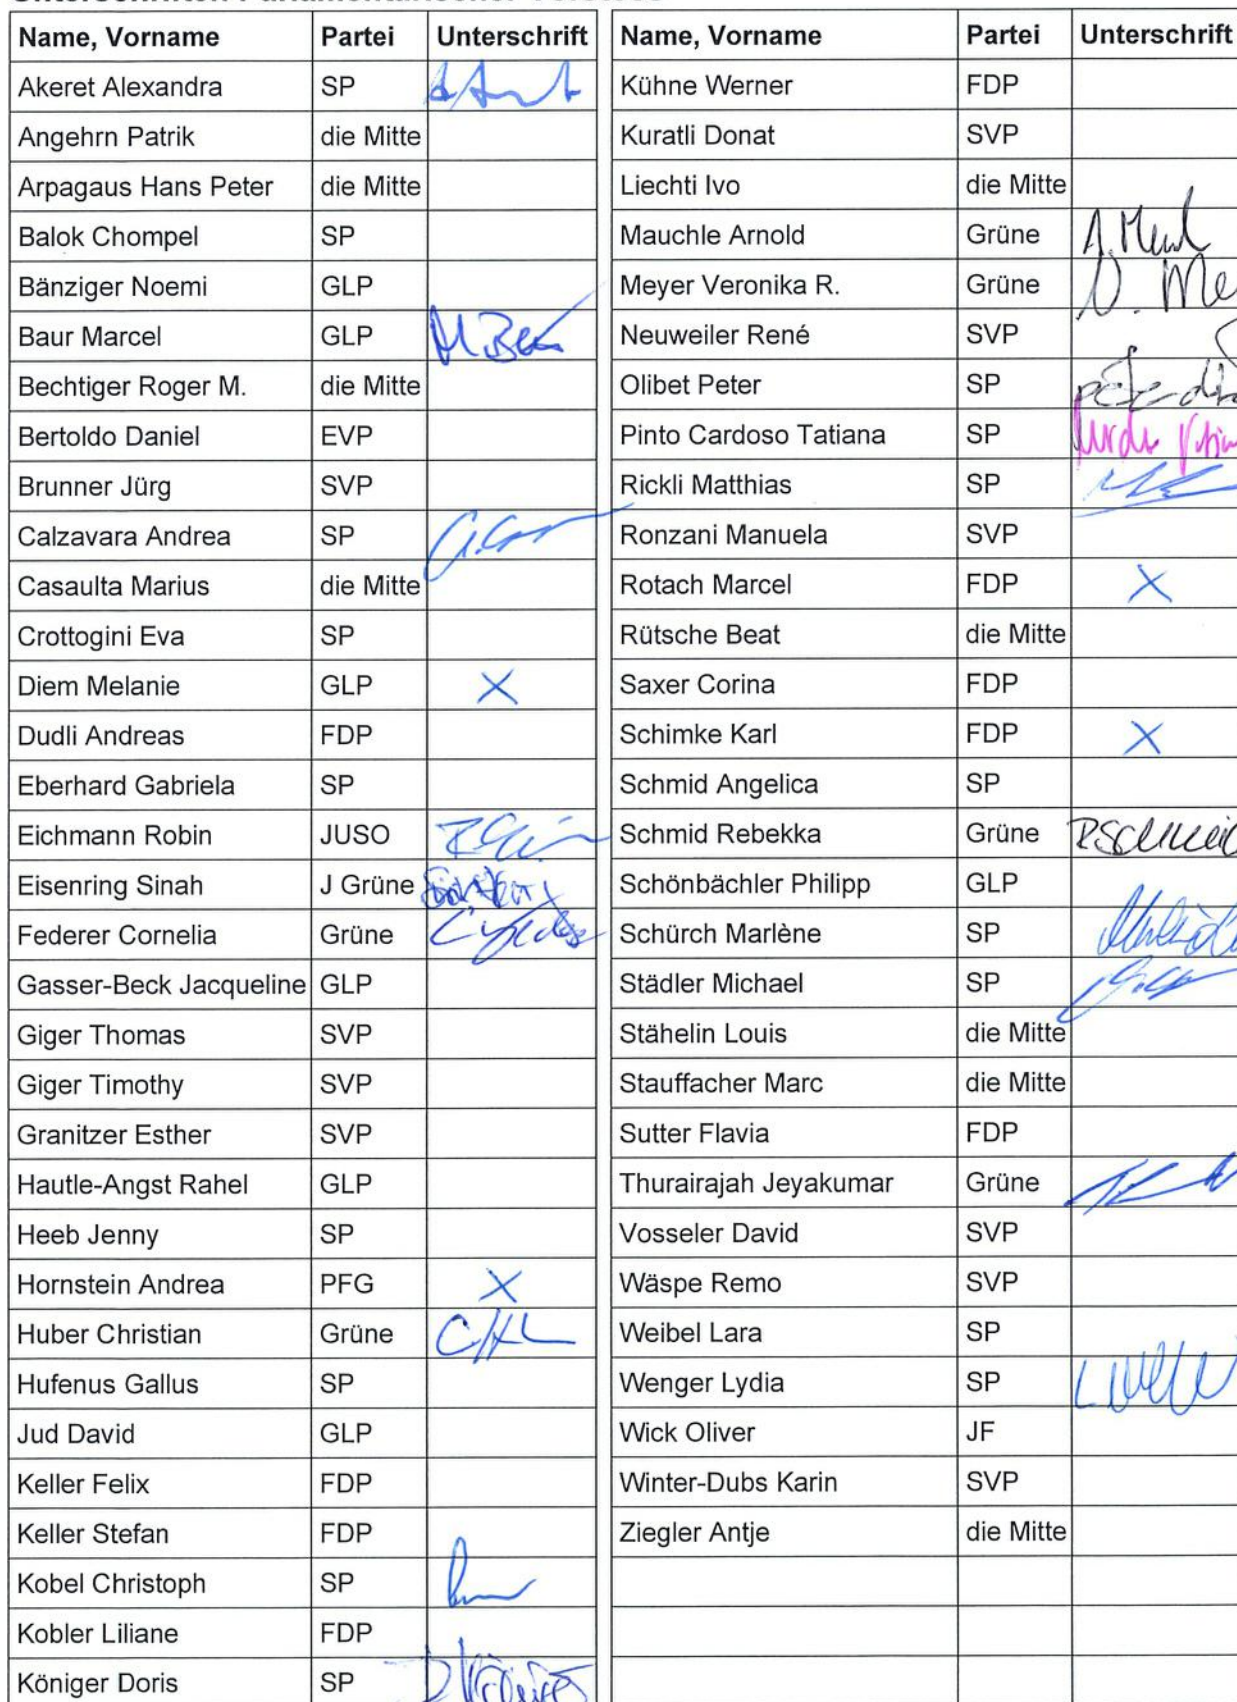 Name, Vorname Partei Unterschrift
Akeret Alexandra SP
Angehrn Patrik die Mitte
Arpagaus Hans Peter die Mitte
Balok Chompel SP
Bänziger Noemi GLP
Baur Marcel GLP
Bechtiger Roger M. die Mitte
Bertoldo Daniel EVP
Brunner Jürg SVP
Calzavara Andrea SP
Casaulta Marius die Mitte
Crottogini Eva SP
Diem Melanie GLP X
Dudli Andreas FDP
Eberhard Gabriela SP
Eichmann Robin JUSO
Eisenring Sinah J Grüne
Federer Cornelia Grüne
Gasser-Beck Jacqueline GLP
Giger Thomas SVP
Giger Timothy SVP
Granitzer Esther SVP
Hautle-Angst Rahel GLP
Heeb Jenny SP
Hornstein Andrea PFG X
Huber Christian Grüne
Hufenus Gallus SP
Jud David GLP
Keller Felix FDP
Keller Stefan FDP
Kobel Christoph SP
Kobler Liliane FDP
Königer Doris SP
Name, Vorname Partei Unterschrift
Kühne Werner FDP
Kuratli Donat SVP
Liechti Ivo die Mitte
Mauchle Arnold Grüne
Meyer Veronika R. Grüne
Neuweiler René SVP
Olibet Peter SP
Pinto Cardoso Tatiana SP
Rickli Matthias SP
Ronzani Manuela SVP
Rotach Marcel FDP X
Rütsche Beat die Mitte
Saxer Corina FDP
Schimke Karl FDP X
Schmid Angelica SP
Schmid Rebekka Grüne
Schönbächler Philipp GLP
Schürch Marlène SP
Städler Michael SP
Stähelin Louis die Mitte
Stauffacher Marc die Mitte
Sutter Flavia FDP
Thurairajah Jeyakumar Grüne
Vosseler David SVP
Wäspe Remo SVP
Weibel Lara SP
Wenger Lydia SP
Wick Oliver JF
Winter-Dubs Karin SVP
Ziegler Antje die Mitte